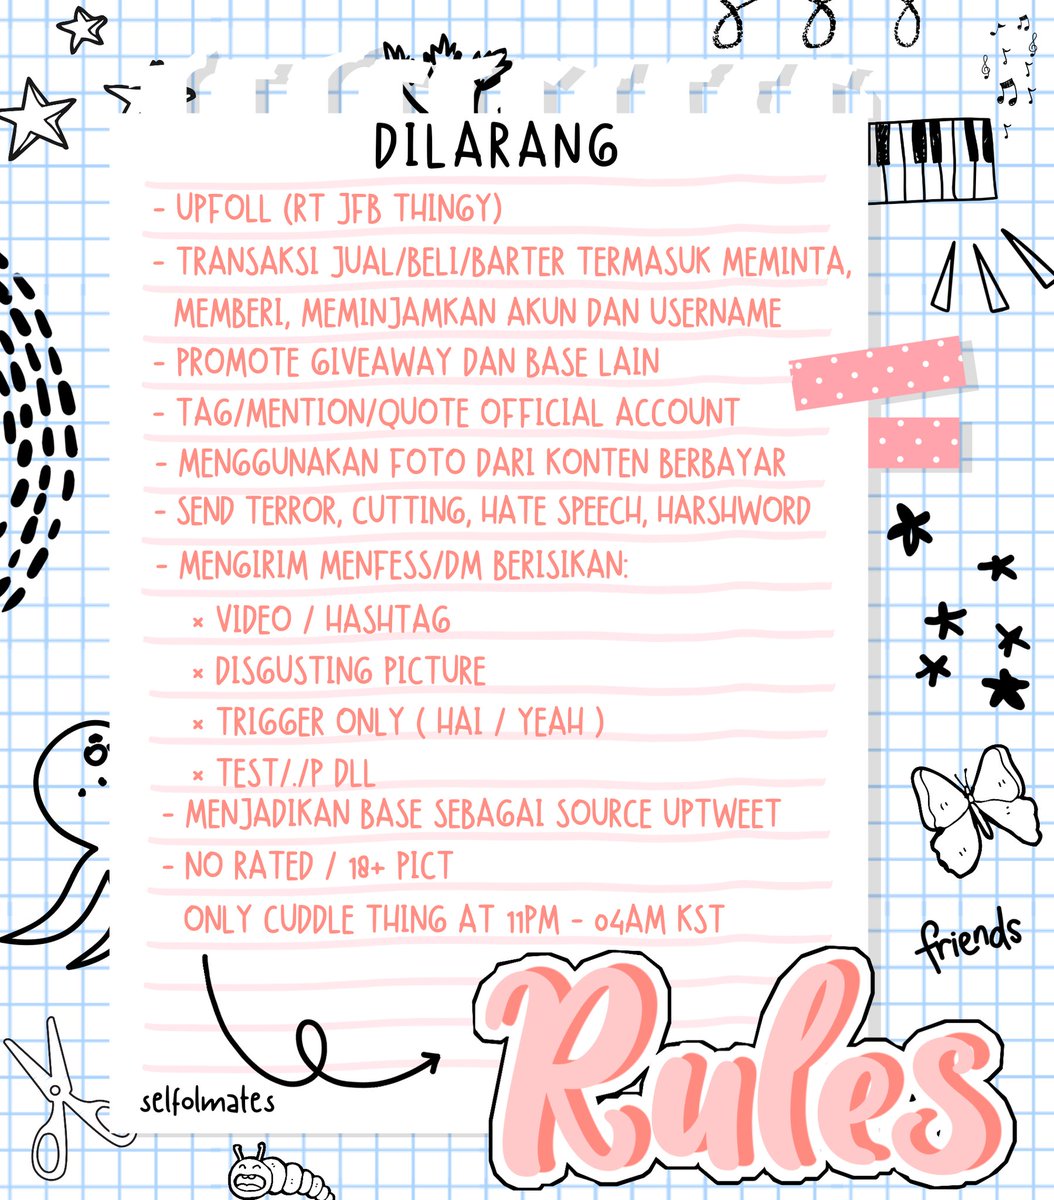 DILARANG
- UPFOLL (RT JFB THINGY)
- TRANSAKSI JUAL/BELI/BARTER TERMASUK MEMINTA,
MEMBERI, MEMINJAMKAN AKUN DAN USERNAME
- PROMOTE GIVEAWAY DAN BASE LAIN
- TAG/MENTION/QUOTE OFFICIAL ACCOUNT
- MENGGUNAKAN FOTO DARI KONTEN BERBAYAR
- SEND TERROR, CUTTING, HATE SPEECH, HARSHWORD
- MENGIRIM MENFESS/DM BERISIKAN:
× VIDEO / HASHTAG
× DISGUSTING PICTURE
× TRIGGER ONLY ( HAI / YEAH )
× TEST/./P DLL
- MENJADIKAN BASE SEBAGAI SOURCE UPTWEET
- NO RATED / 18+ PICT
ONLY CUDDLE THING AT 11PM - 04AM KST
friends
Rules
selfolmates